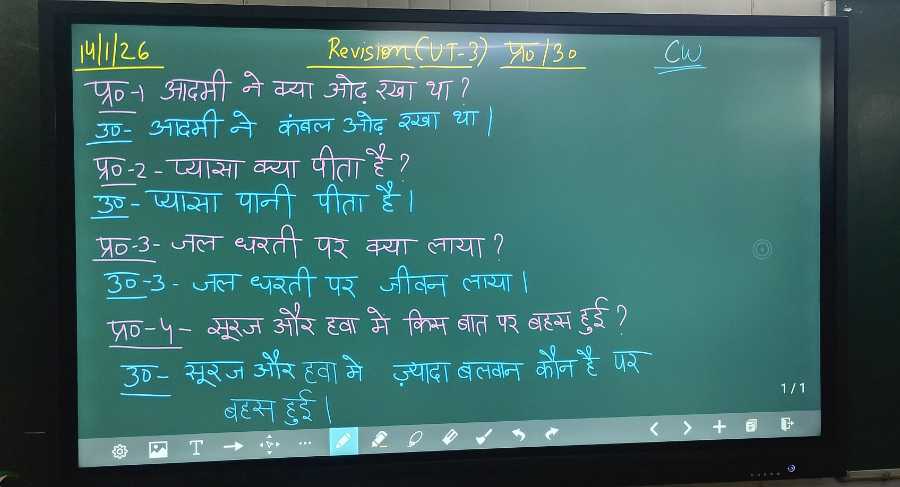 14/1/26 Revision (UT-3) प्र० /30 CW
प्र०-1 आदमी ने क्या ओढ़ रखा था?
उ०- आदमी ने कंबल ओढ़ रखा था।
प्र०-2- प्यासा क्या पीता है?
उ०- प्यासा पानी पीता है।
प्र०-3- जल धरती पर क्या लाया?
उ०-3- जल धरती पर जीवन लाया।
प्र०-4- सूरज और हवा मे किस बात पर बहस हुई?
उ०- सूरज और हवा मे ज़्यादा बलवान कौन है पर
बहस हुई।
1/1
T